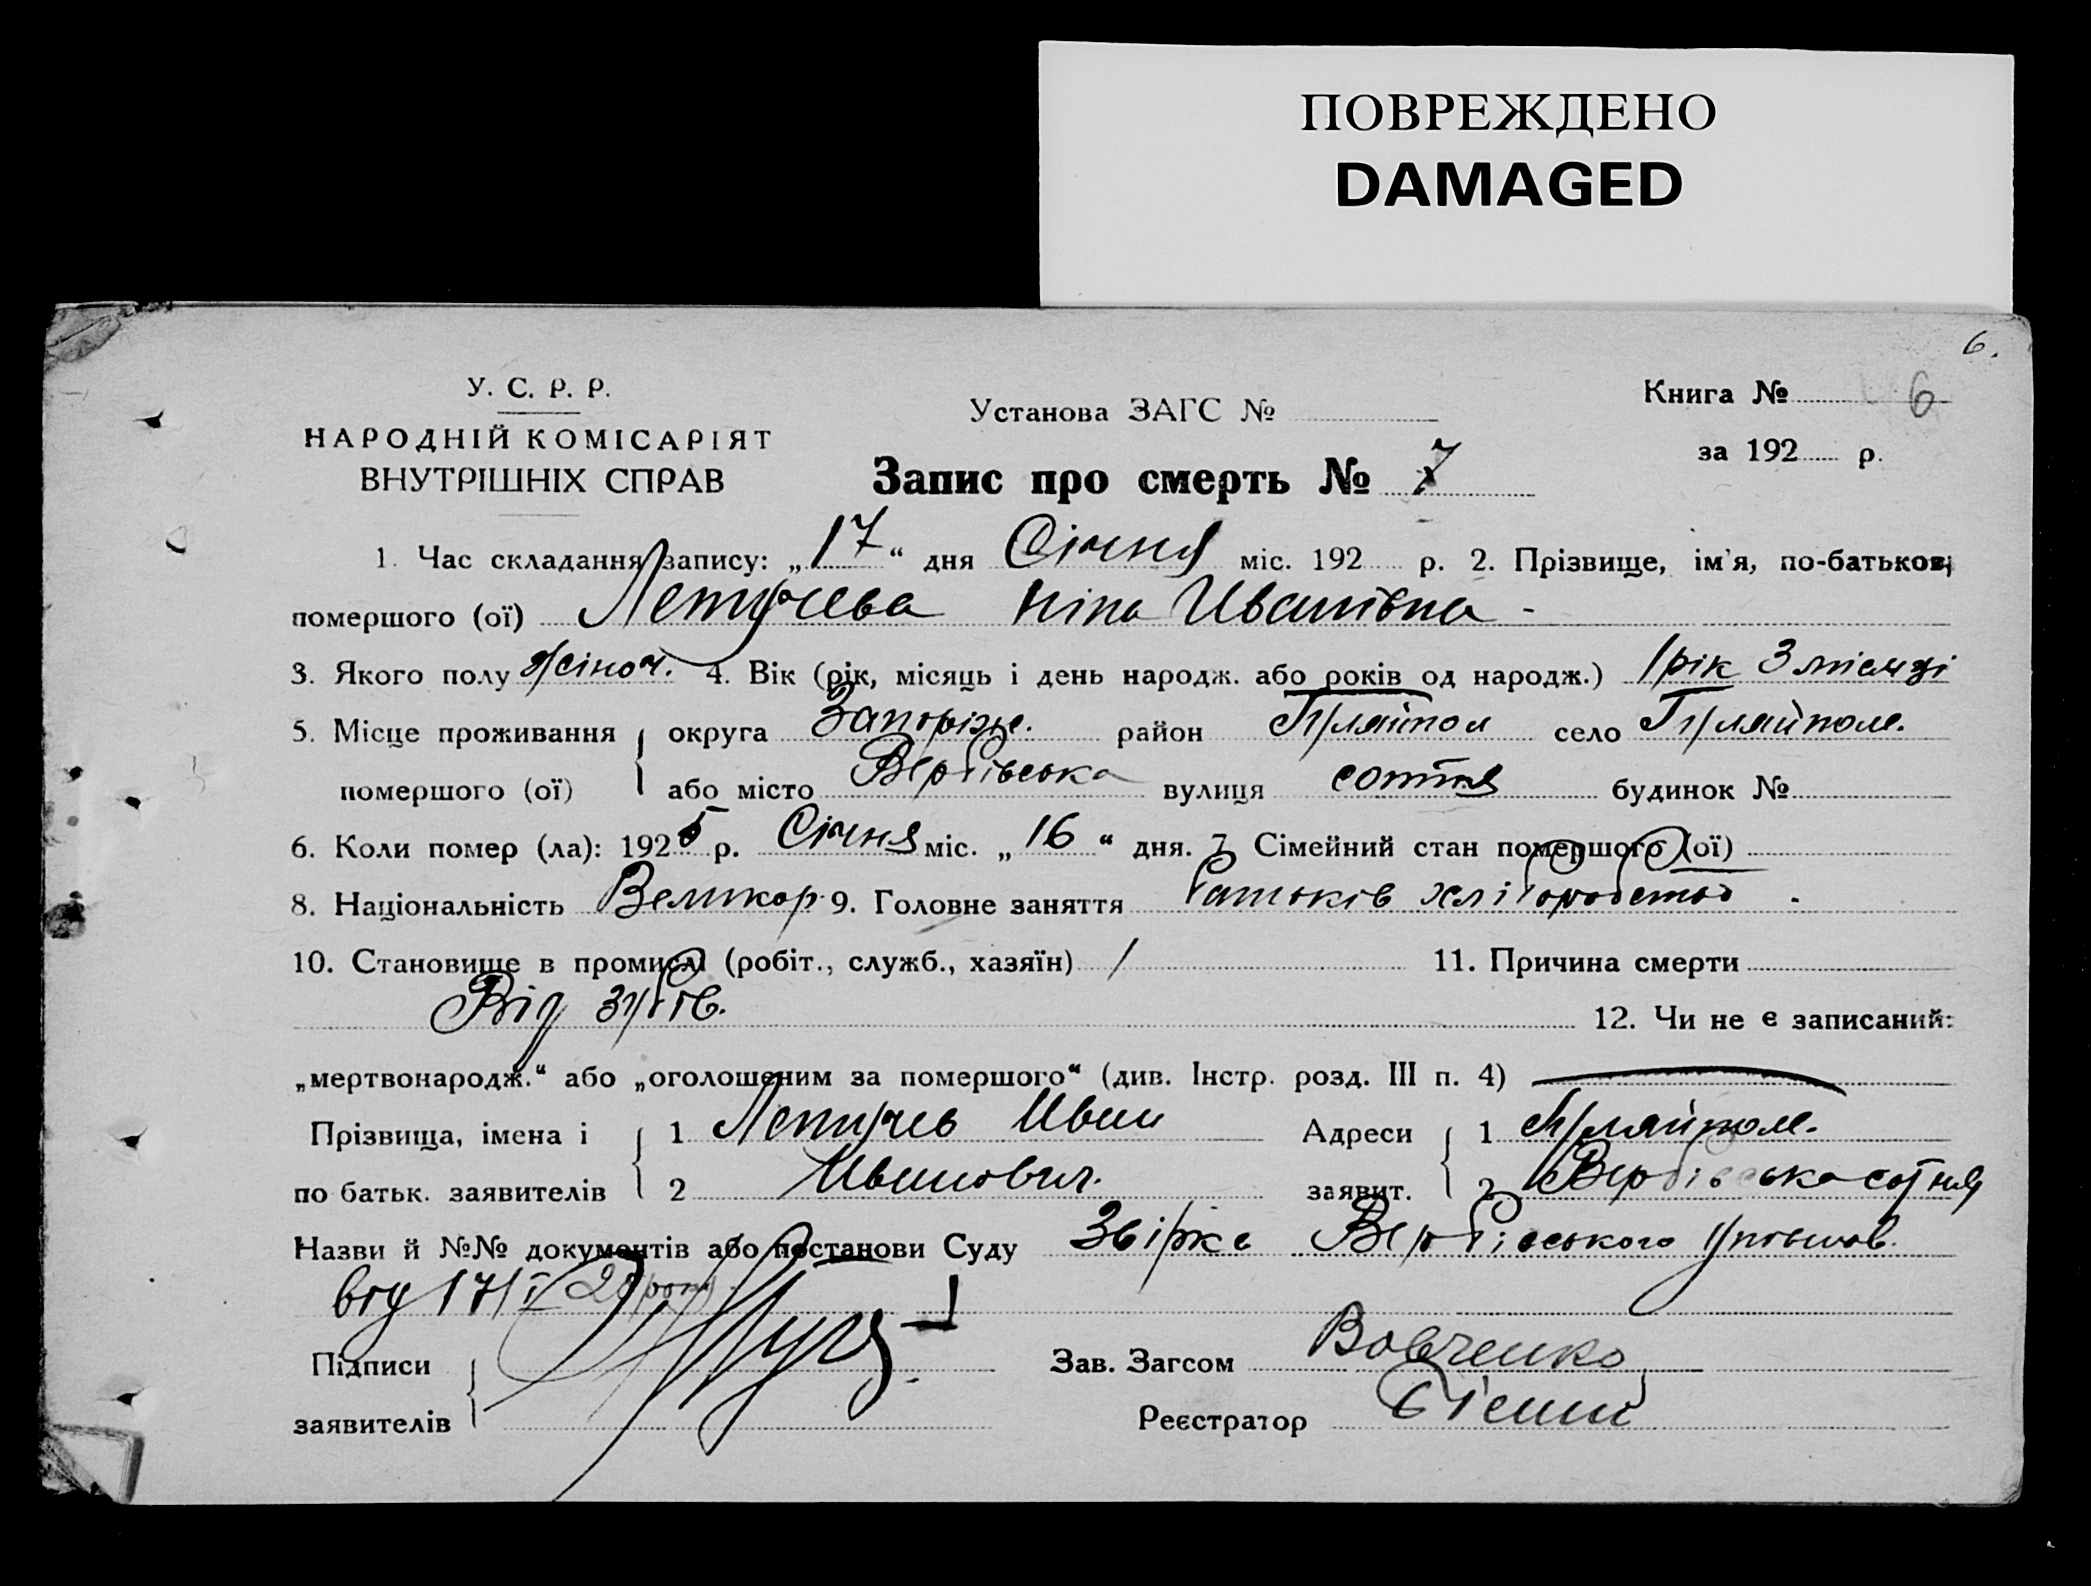 ПОВРЕЖДЕНО
DAMAGED
6.
У. С. Р. Р.
НАРОДНІЙ КОМІСАРІЯТ
ВНУТРІШНІХ СПРАВ
Установа ЗАГС №
Книга № 6
за 192 р.
Запис про смерть № 7
1. Час складання запису: „17“ дня Січня міс. 192 р. 2. Прізвище, ім'я, по-батькові
помершого (ої) Ніна Иванівна -
3. Якого полу жіноч. 4. Вік (рік, місяць і день народж. або років од народж.) 1 рік 3 місяці
5. Місце проживання округа Запоріж. район Гуляйпол село Гуляйполе.
помершого (ої) або місто Вербівська вулиця сотня будинок №
6. Коли помер (ла): 1925 р. Січня міс. „16“ дня. 7. Сімейний стан помершого (ої)
8. Національність Великор. 9. Головне заняття Батьків хліборобство .
10. Становище в промислі (робіт., служб., хазяїн) / 11. Причина смерти
Від зубів. 12. Чи не є записаний:
„мертвонародж.“ або „оголошеним за помершого“ (див. Інстр. розд. III п. 4)
Прізвища, імена і 1 Иван Адреси 1 Гуляйполе.
по батьк. заявителів 2 Иванович. заявит. 2 Вербівська сотня
Назви й №№ документів або постанови Суду Вербівського
від 17/I
Підписи Зав. Загсом Вовченко
заявителів Реєстратор